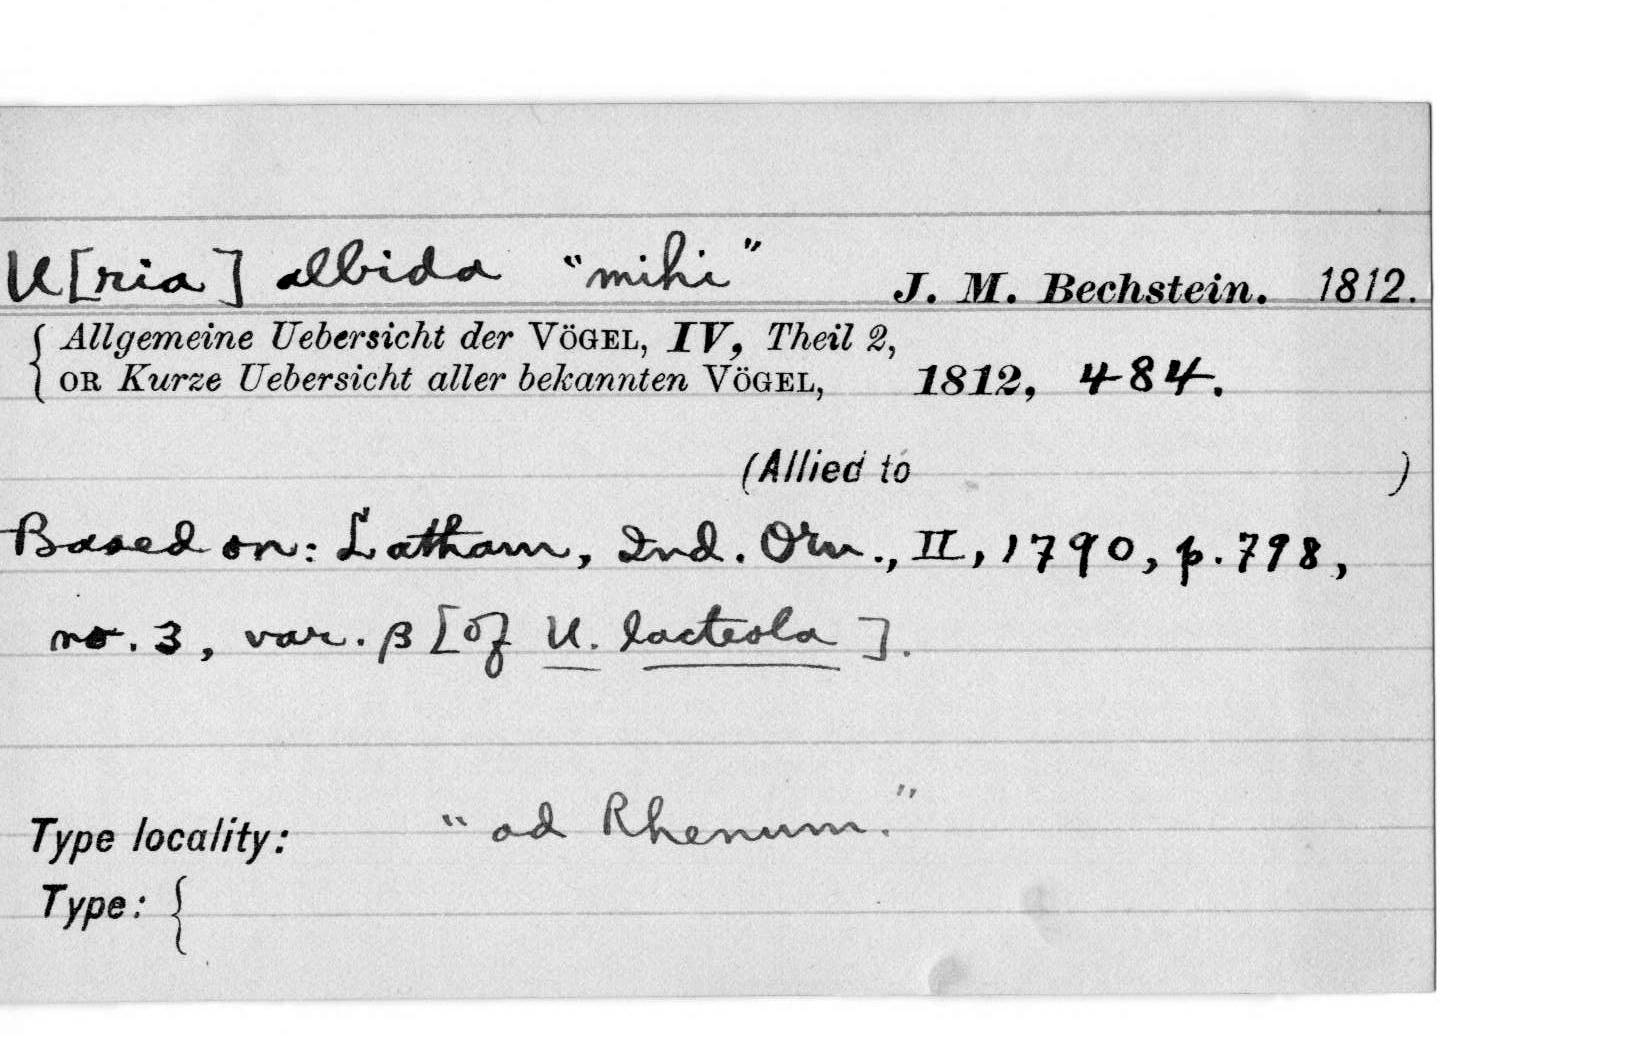 U[ria] albida "mihi" J. M. Bechstein. 1812.
{ Allgemeine Uebersicht der VÖGEL, IV, Theil 2,
OR Kurze Uebersicht aller bekannten VÖGEL, 1812, 484.
(Allied to )
Based on: Latham, Ind. Orn., II, 1790, p. 798,
no. 3, var. β [of U. lacteola].
Type locality: "ad Rhenum."
Type: {